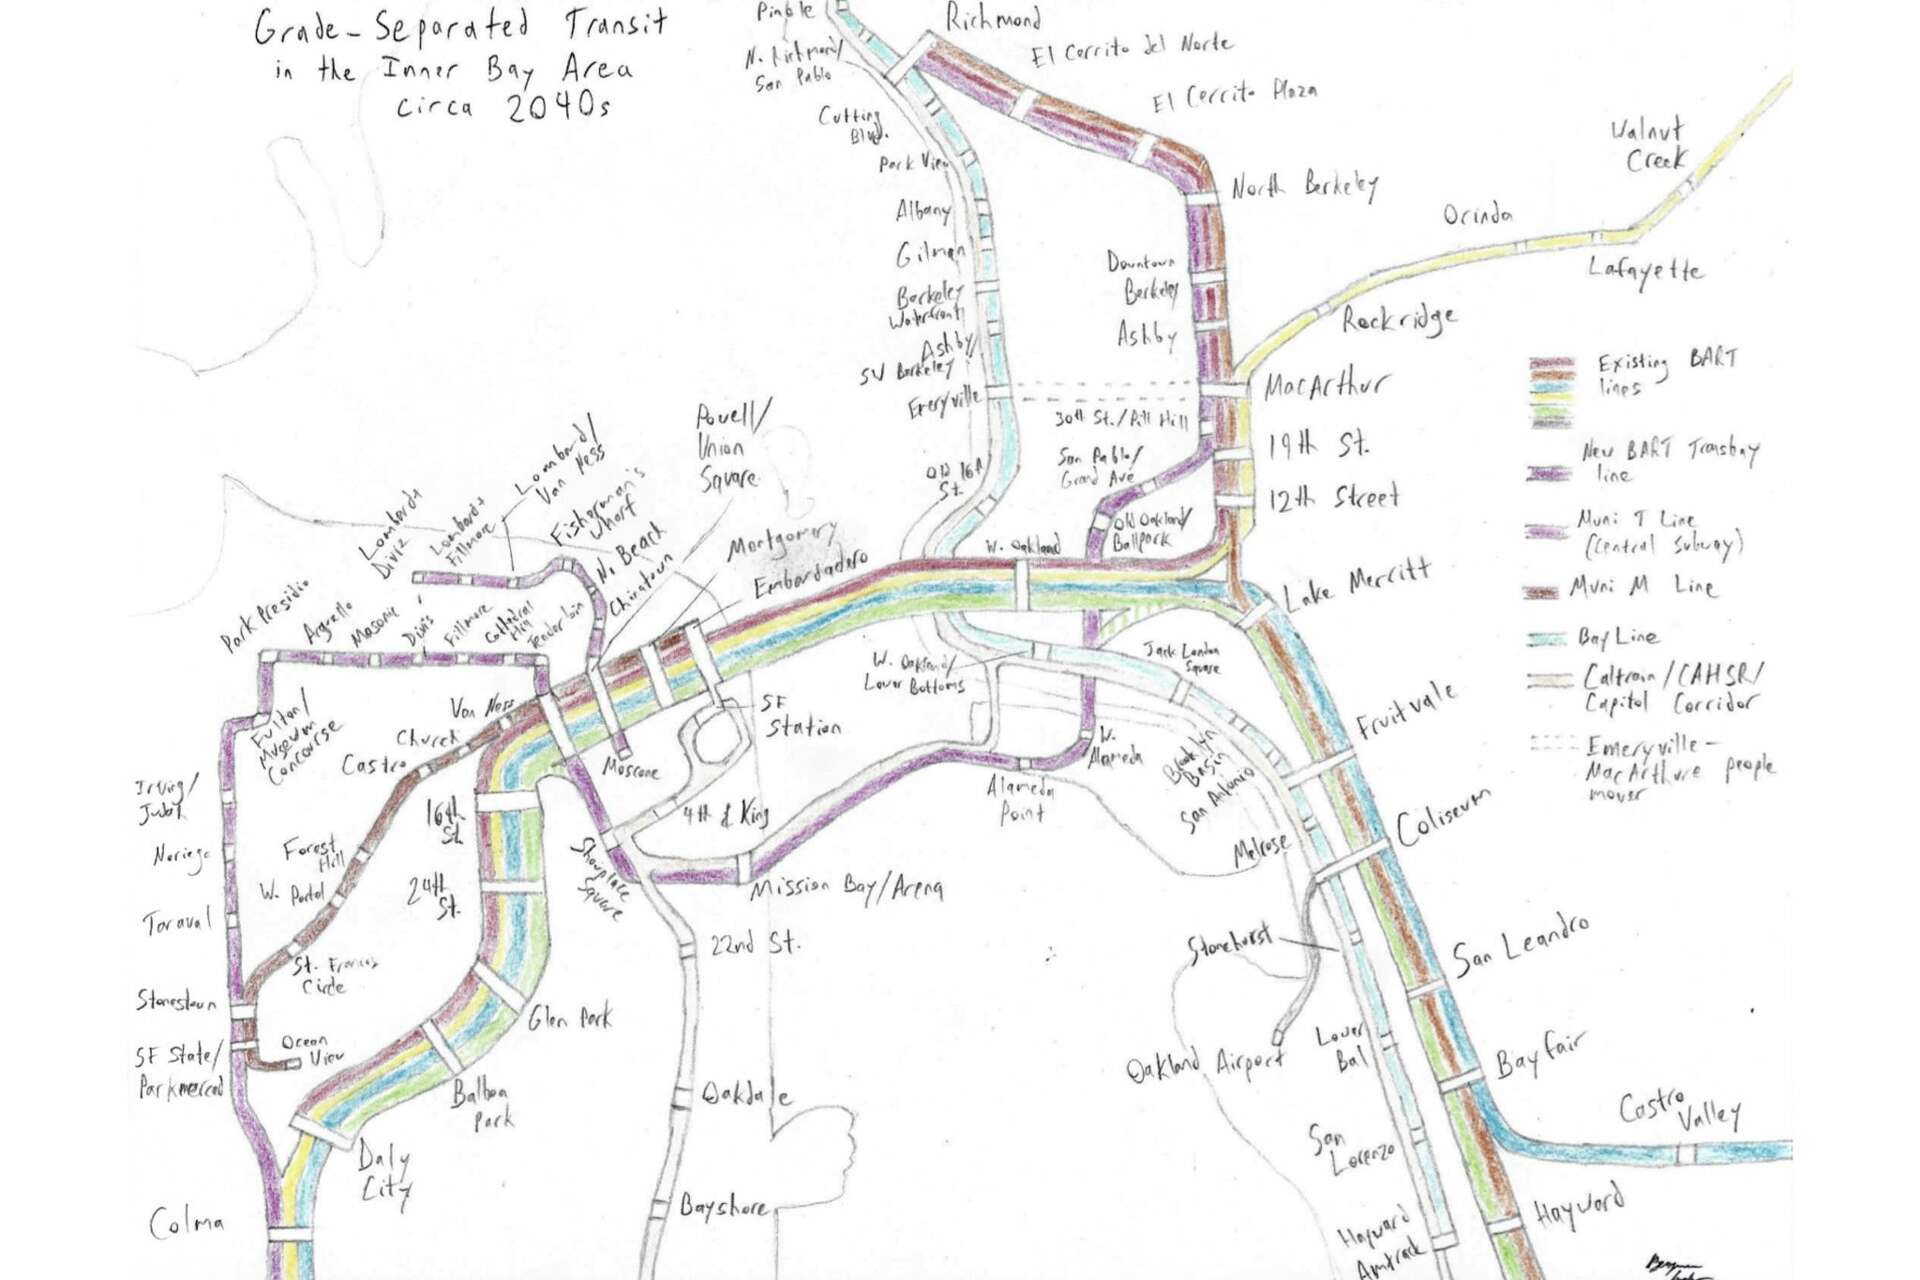 Grade-Separated Transit
in the Inner Bay Area
circa 2040s
Pinole
Richmond
N. Richmond/
San Pablo
El Cerrito del Norte
El Cerrito Plaza
Cutting
Blvd.
Park View
Walnut
Creek
North Berkeley
Albany
Orinda
Gilman
Lafayette
Downtown
Berkeley
Berkeley
Waterfront
Rockridge
Ashby
Ashby/
SW Berkeley
Emeryville
MacArthur
30th St./Pill Hill
19th St.
San Pablo/
Grand Ave
12th Street
Old Oakland/
Ballpark
Old 16th
St.
W. Oakland
Lake Merritt
Existing BART
lines
New BART Transbay
line
Muni T Line
(Central Subway)
Muni M Line
Bay Line
Caltrain/CAHSR/
Capitol Corridor
Emeryville-
MacArthure people
mover
Powell/
Union
Square
Montgomery
Embarcadero
Lombard/
Van Ness
Fisherman's
Wharf
N. Beach
Chinatown
Lombard+
Fillmore
Lombard+
Diviz
Park Presidio
Arguello
Masonic
Divis
Fillmore
Cathedral
Hill
Tenderloin
Van Ness
Church
Castro
Fulton/
Museum
Concourse
Irving/
Judah
Noriega
Taraval
Forest
Hill
W. Portal
St. Francis
Circle
Stonestown
SF State/
Parkmerced
Ocean
View
16th
St.
24th
St.
Glen Park
Balboa
Park
Daly
City
Colma
Moscone
SF
Station
4th & King
Showplace
Square
Mission Bay/Arena
22nd St.
Oakdale
Bayshore
W. Oakland/
Lower Bottoms
Jack London
Square
W.
Alameda
Alameda
Point
Brooklyn
Basin
San Antonio
Fruitvale
Melrose
Coliseum
Stonehurst
Oakland Airport
San Leandro
Lower
Bal
Bayfair
San
Lorenzo
Castro
Valley
Hayward
Hayward
Amtrack